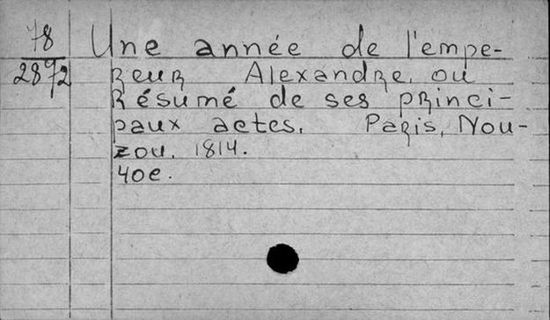 78
2872
Une année de l'empe-
reur Alexandre, ou
Résumé de ses princi-
paux actes. Paris, Nou-
zou, 1814.
40e.